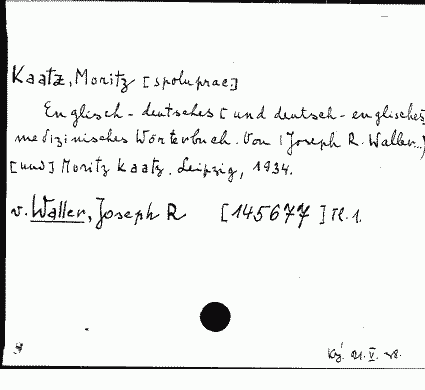 Kaatz, Moritz [spoluprac]
Englisch - deutsches [und deutsch - englisches]
medizinisches Wörterbuch. Von (Joseph R. Waller..)
[und] Moritz Kaatz. Leipzig, 1934.
v. Waller, Joseph R [145677] Tl. 1.
21. V. 48.